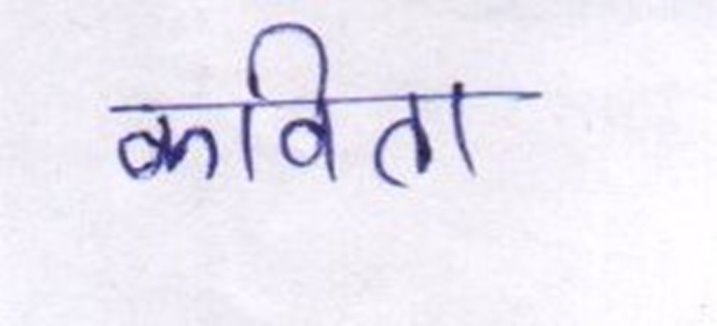 कविता